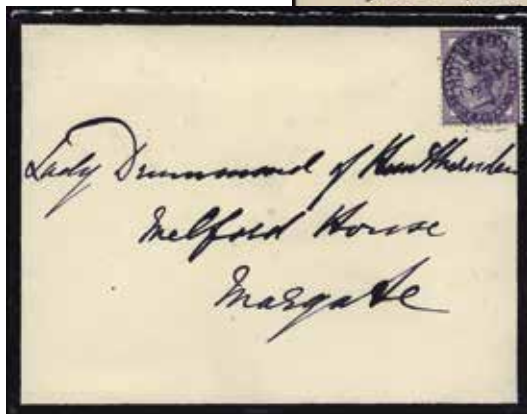 Lady Drummond of Hawthornden
Melford House
Margate